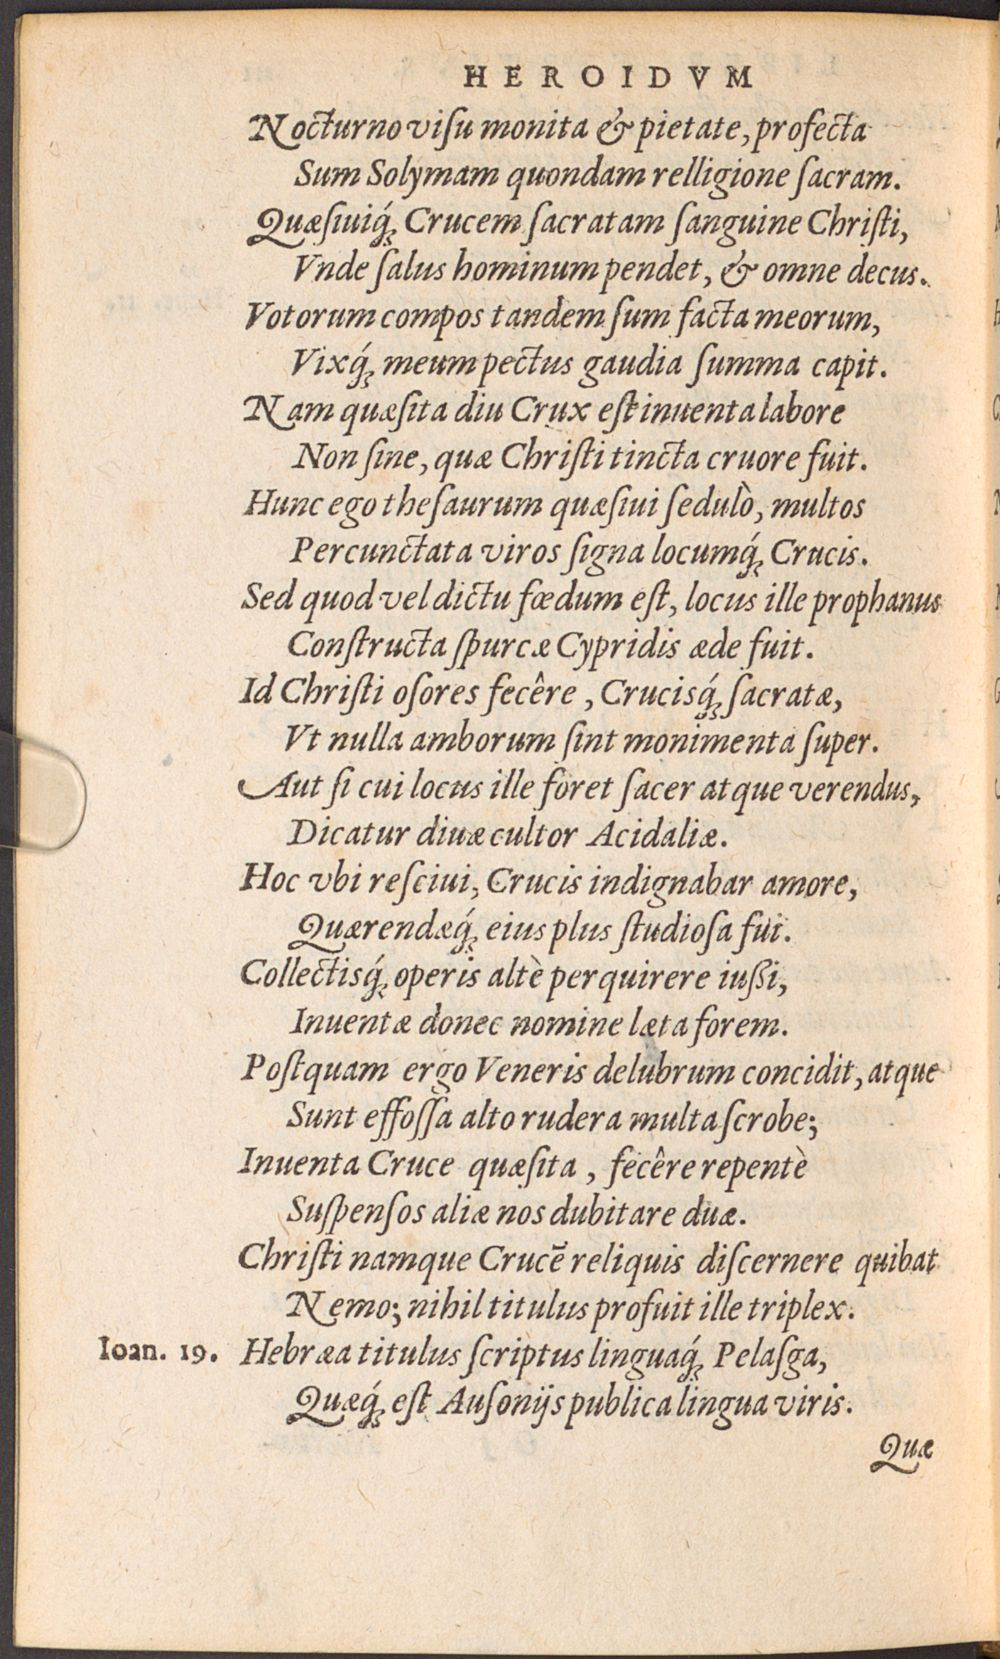 HEROIDVM
Nocturno viſu monita & pietate, profecta
Sum Solymam quondam relligione ſacram.
Quæſiuiq́ꝫ Crucem ſacratam ſanguine Chriſti,
Vnde ſalus hominum pendet, & omne decus.
Votorum compos tandem ſum facta meorum,
Vixq́ꝫ meum pectus gaudia ſumma capit.
Nam quæſita diu Crux eſt inuenta labore
Non ſine, quæ Chriſti tincta cruore fuit.
Hunc ego theſaurum quæſiui ſedulò, multos
Percunctata viros ſigna locumq́ꝫ Crucis.
Sed quod vel dictu fœdum eſt, locus ille prophanus
Conſtructa ſpurcæ Cypridis æde fuit.
Id Chriſti oſores fecêre, Crucisq́ꝫ ſacratæ,
Vt nulla amborum ſint monimenta ſuper.
Aut ſi cui locus ille foret ſacer atque verendus,
Dicatur diuæ cultor Acidaliæ.
Hoc vbi reſciui, Crucis indignabar amore,
Quærendæq́ꝫ eius plus ſtudioſa fui.
Collectisq́ꝫ operis altè perquirere iußi,
Inuentæ donec nomine læta forem.
Poſtquam ergo Veneris delubrum concidit, atque
Sunt effoſſa alto rudera multa ſcrobe;
Inuenta Cruce quæſita, fecêre repentè
Suſpenſos aliæ nos dubitare duæ.
Chriſti namque Crucē reliquis diſcernere quibat
Nemo; nihil titulus profuit ille triplex.
Ioan. 19. Hebræa titulus ſcriptus linguaq́ꝫ Pelaſga,
Quæq́ꝫ eſt Auſonijs publica lingua viris.
Quæ